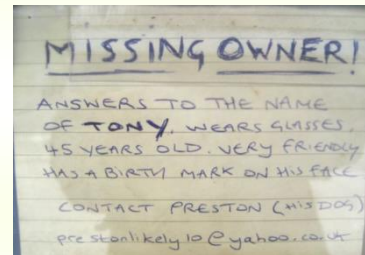 MISSING OWNER!
ANSWERS TO THE NAME
OF TONY. WEARS GLASSES.
45 YEARS OLD. VERY FRIENDLY
HAS A BIRTH MARK ON HIS FACE
CONTACT PRESTON (HIS DOG)
prestonlikely10@yahoo.co.uk